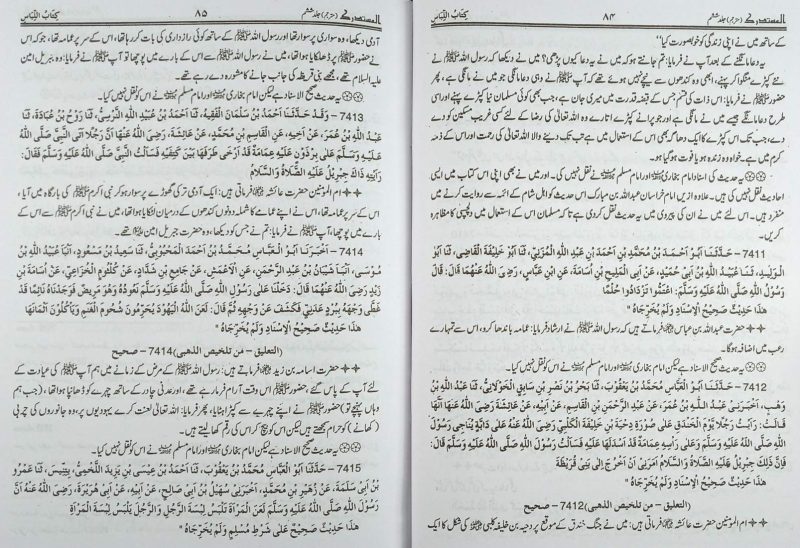 المستدرك (مترجم) جلد ششم
۸۴
كِتَابُ اللِّبَاسِ
کے ساتھ میں نے اپنی زندگی کو خوبصورت کیا“
یہ دعا مانگنے کے بعد آپ نے فرمایا: تم جانتے ہو کہ میں نے یہ دعا کیوں پڑھی؟ میں نے دیکھا کہ رسول اللہ ﷺ نے
نئے کپڑے منگوا کر پہنے، ابھی وہ کندھوں سے نیچے نہیں ہوئے تھے کہ آپ ﷺ نے وہی دعا مانگی جو میں نے مانگی ہے، پھر
حضور ﷺ نے فرمایا: اس ذات کی قسم جس کے قبضہ قدرت میں میری جان ہے، جب بھی کوئی مسلمان نیا کپڑا پہنے اور اسی
طرح دعا مانگے جیسے میں نے مانگی ہے اور جو پرانے کپڑے اتارے وہ اللہ تعالیٰ کی رضا کے لئے کسی غریب مسکین کو دے
دے، جب تک اس کپڑے کا ایک دھاگہ بھی اس کے استعمال میں ہے تب تک دینے والا اللہ تعالیٰ کی رحمت اور اس کے ذمہ
کرم میں ہے۔ خواہ وہ زندہ ہو یا فوت ہو گیا ہو۔
یہ حدیث کی اسناد امام بخاری اور امام مسلم نے نقل نہیں کی۔ اور میں نے بھی اپنی اس کتاب میں ایسی
احادیث نقل نہیں کی ہیں۔ علاوہ ازیں امام خراسان عبداللہ بن مبارک اس حدیث کو اہل شام کے ائمہ سے روایت کرنے میں
منفرد ہیں۔ اس لئے میں نے ان کی پیروی میں یہ حدیث نقل کر دی ہے تاکہ مسلمان اس کے استعمال میں دلچسپی کا مظاہرہ
کریں۔
7411 – حَدَّثَنَا أَبُو أَحْمَدَ بْنُ مُحَمَّدِ بْنِ أَحْمَدَ بْنِ عَبْدِ اللَّهِ الْمُزَنِيُّ، ثَنَا أَبُو خَلِيفَةَ الْقَاضِي، ثَنَا أَبُو
الْوَلِيدِ، ثَنَا عُبَيْدُ اللَّهِ بْنُ أَبِي حُمَيْدٍ، عَنْ أَبِي الْمَلِيحِ بْنِ أُسَامَةَ، عَنِ ابْنِ عَبَّاسٍ، رَضِيَ اللَّهُ عَنْهُمَا قَالَ: قَالَ
رَسُولُ اللَّهِ صَلَّى اللَّهُ عَلَيْهِ وَسَلَّمَ: اعْتَمُّوا تَزْدَادُوا حُلْمًا
هَذَا حَدِيثٌ صَحِيحُ الْإِسْنَادِ وَلَمْ يُخَرِّجَاهُ "
حضرت عبداللہ بن عباس فرماتے ہیں کہ رسول اللہ ﷺ نے ارشاد فرمایا: عمامہ باندھا کرو، اس سے تمہارے
رعب میں اضافہ ہوگا۔
یہ حدیث صحیح الاسناد ہے لیکن امام بخاری اور امام مسلم نے اس کو نقل نہیں کیا۔
7412 – حَدَّثَنَا أَبُو الْعَبَّاسِ مُحَمَّدُ بْنُ يَعْقُوبَ، ثَنَا بَحْرُ بْنُ نَصْرِ بْنِ سَابِقٍ الْخَوْلَانِيُّ، ثَنَا عَبْدُ اللَّهِ بْنُ
وَهْبٍ، أَخْبَرَنِي عَبْدُ اللَّهِ بْنُ عُمَرَ، عَنْ عَبْدِ الرَّحْمَنِ بْنِ الْقَاسِمِ، عَنْ أَبِيهِ، عَنْ عَائِشَةَ رَضِيَ اللَّهُ عَنْهَا أَنَّهَا
قَالَتْ: رَأَيْتُ رَجُلًا يَوْمَ الْخَنْدَقِ عَلَى صُورَةِ دِحْيَةَ بْنِ خَلِيفَةَ الْكَلْبِيِّ رَضِيَ اللَّهُ عَنْهُ عَلَى دَابَّةٍ يُنَاجِي رَسُولَ
اللَّهِ صَلَّى اللَّهُ عَلَيْهِ وَسَلَّمَ وَعَلَى رَأْسِهِ عِمَامَةٌ قَدْ أَسْدَلَهَا عَلَيْهِ فَسَأَلْتُ رَسُولَ اللَّهِ صَلَّى اللَّهُ عَلَيْهِ وَسَلَّمَ قَالَ:
فَإِنَّ ذَلِكَ جِبْرِيلَ عَلَيْهِ الصَّلَاةُ وَالسَّلَامُ أَمَرَنِي أَنْ أَخْرُجَ إِلَى بَنِي قُرَيْظَةَ
هَذَا حَدِيثٌ صَحِيحُ الْإِسْنَادِ وَلَمْ يُخَرِّجَاهُ "
(التعليق – من تلخيص الذهبي) 7412 – صحيح
ام المومنین حضرت عائشہ فرماتی ہیں: میں نے جنگ خندق کے موقع پر دحیہ بن خلیفہ کلبی کی شکل کا ایک
المستدرك (مترجم) جلد ششم
۸۵
كِتَابُ اللِّبَاسِ
آدمی دیکھا، وہ سواری پر سوار تھا اور رسول اللہ ﷺ کے ساتھ کوئی رازداری کی بات کر رہا تھا، اس کے سر پر عمامہ تھا، جو کہ اس
نے حضور ﷺ پر ڈھلکایا ہوا تھا، میں نے رسول اللہ ﷺ سے اس کے بارے میں پوچھا تو آپ ﷺ نے فرمایا: وہ، جبریل امین
علیہ السلام تھے، مجھے بنی قریظہ کی جانب جانے کا مشورہ دے رہے تھے۔
یہ حدیث صحیح الاسناد ہے لیکن امام بخاری اور امام مسلم نے اس کو نقل نہیں کیا۔
7413 – وَقَدْ حَدَّثَنَا أَحْمَدُ بْنُ سَلْمَانَ الْفَقِيهُ، ثَنَا أَحْمَدُ بْنُ مُحَمَّدٍ التِّرْمِذِيُّ، ثَنَا رَوْحُ بْنُ عُبَادَةَ، ثَنَا
عَبْدُ اللَّهِ بْنُ عُمَرَ، عَنْ أَخِيهِ، عَنِ الْقَاسِمِ بْنِ مُحَمَّدٍ، عَنْ عَائِشَةَ، رَضِيَ اللَّهُ عَنْهَا أَنَّ رَجُلًا أَتَى النَّبِيَّ صَلَّى اللَّهُ
عَلَيْهِ وَسَلَّمَ عَلَى بِرْذَوْنٍ عَلَيْهِ عِمَامَةٌ قَدْ أَرْخَى طَرَفَهَا بَيْنَ كَتِفَيْهِ فَسَأَلْتُ النَّبِيَّ صَلَّى اللَّهُ عَلَيْهِ وَسَلَّمَ فَقَالَ:
رَأَيْتِهِ ذَاكَ جِبْرِيلُ عَلَيْهِ الصَّلَاةُ وَالسَّلَامُ
ام المومنین حضرت عائشہ فرماتی ہیں: ایک آدمی ترکی گھوڑے پر سوار ہو کر نبی اکرم ﷺ کی بارگاہ میں آیا،
اس کے سر پر عمامہ تھا، اس نے اپنے عمامے کا شملہ دونوں کندھوں کے درمیان لٹکایا ہوا تھا، میں نے نبی اکرم ﷺ سے اس کے
بارے میں پوچھا، آپ ﷺ نے فرمایا: تم نے جس کو دیکھا، وہ حضرت جبریل امین تھے۔
7414 – أَخْبَرَنَا أَبُو الْعَبَّاسِ مُحَمَّدُ بْنُ أَحْمَدَ الْمَحْبُوبِيُّ، ثَنَا سَعِيدُ بْنُ مَسْعُودٍ، أَنْبَأَ عُبَيْدُ اللَّهِ بْنُ
مُوسَى، أَنْبَأَ شَيْبَانُ بْنُ عَبْدِ الرَّحْمَنِ، عَنِ الْأَعْمَشِ، عَنْ جَامِعِ بْنِ شَدَّادٍ، عَنْ كُلْثُومٍ الْخُزَاعِيِّ، عَنْ أُسَامَةَ بْنِ
زَيْدٍ رَضِيَ اللَّهُ عَنْهُمَا قَالَ: دَخَلْنَا عَلَى رَسُولِ اللَّهِ صَلَّى اللَّهُ عَلَيْهِ وَسَلَّمَ نَعُودُهُ وَهُوَ مَرِيضٌ فَوَجَدْنَاهُ نَائِمًا قَدْ
غَطَّى وَجْهَهُ بِبُرْدٍ عَدَنِيٍّ فَكَشَفَ عَنْ وَجْهِهِ ثُمَّ قَالَ: لَعَنَ اللَّهُ الْيَهُودَ يُحَرِّمُونَ شُحُومَ الْغَنَمِ وَيَأْكُلُونَ أَثْمَانَهَا
هَذَا حَدِيثٌ صَحِيحُ الْإِسْنَادِ وَلَمْ يُخَرِّجَاهُ "
(التعليق – من تلخيص الذهبي) 7414 – صحيح
حضرت اسامہ بن زید فرماتے ہیں: رسول اللہ ﷺ کے مرض کے زمانے میں ہم آپ ﷺ کی عیادت کے
لئے آپ کے پاس گئے، حضور ﷺ اس وقت آرام فرما رہے تھے، اور عدنی چادر کے ساتھ چہرے کو ڈھانپا ہوا تھا، (جب ہم
وہاں پہنچے تو) حضور ﷺ نے اپنے چہرے سے کپڑا ہٹایا، پھر فرمایا: اللہ تعالیٰ لعنت کرے یہودیوں پر، وہ جانوروں کی چربی
(کھانے) کو حرام سمجھتے ہیں لیکن اس کو بیچ کر اس کی رقم کھا لیتے ہیں۔
یہ حدیث صحیح الاسناد ہے لیکن امام بخاری اور امام مسلم نے اس کو نقل نہیں کیا۔
7415 – حَدَّثَنَا أَبُو الْعَبَّاسِ مُحَمَّدُ بْنُ يَعْقُوبَ، ثَنَا أَحْمَدُ بْنُ عِيسَى بْنِ يَزِيدَ اللَّخْمِيُّ، بِتِنِّيسَ، ثَنَا عَمْرُو
بْنُ أَبِي سَلَمَةَ، عَنْ زُهَيْرِ بْنِ مُحَمَّدٍ، أَخْبَرَنِي سُهَيْلُ بْنُ أَبِي صَالِحٍ، عَنْ أَبِيهِ، عَنْ أَبِي هُرَيْرَةَ، رَضِيَ اللَّهُ عَنْهُ أَنَّ
رَسُولَ اللَّهِ صَلَّى اللَّهُ عَلَيْهِ وَسَلَّمَ لَعَنَ الْمَرْأَةَ تَلْبَسُ لِبْسَةَ الرَّجُلِ وَالرَّجُلَ يَلْبَسُ لِبْسَةَ الْمَرْأَةِ
هَذَا حَدِيثٌ صَحِيحٌ عَلَى شَرْطِ مُسْلِمٍ وَلَمْ يُخَرِّجَاهُ "